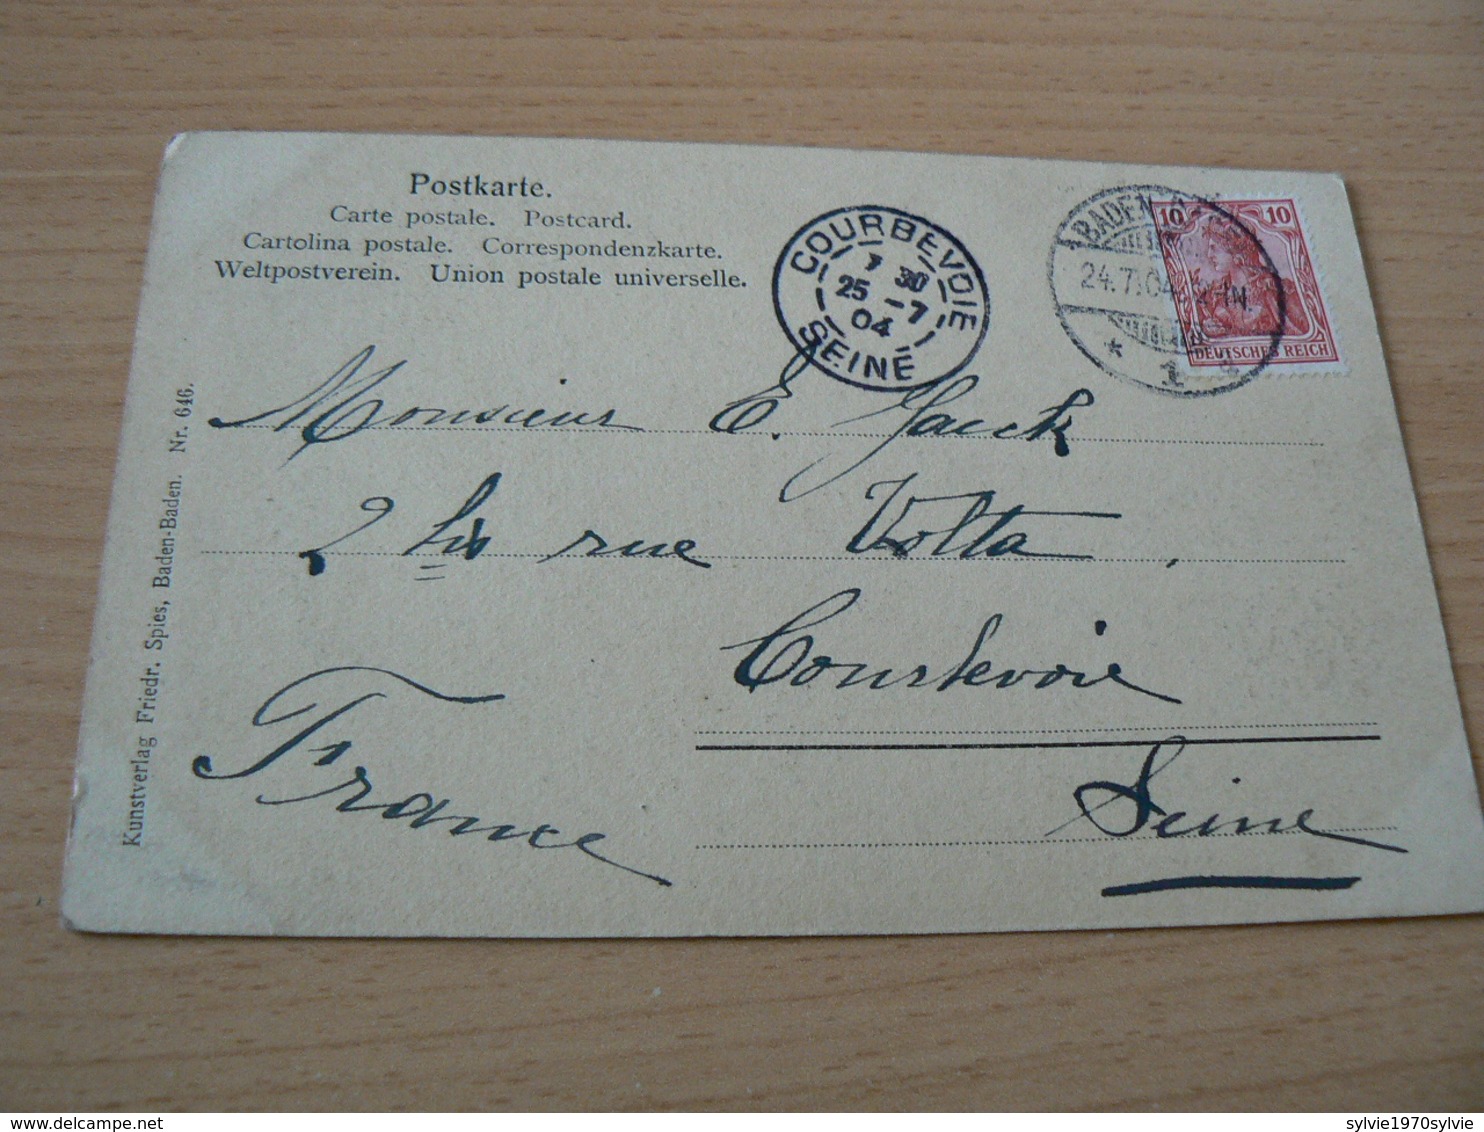 Postkarte.
Carte postale. Postcard.
Cartolina postale. Correspondenzkarte.
Weltpostverein. Union postale universelle.
COURBEVOIE
7 30
25 -7
04
SEINE
BADEN
24.7.04
* 1
10 10
DEUTSCHES REICH
Monsieur E. Jaeck
2 bis rue Volta,
Courbevoie
Seine
France
Kunstverlag Friedr. Spies, Baden-Baden. Nr. 646.
sylvie1970sylvie